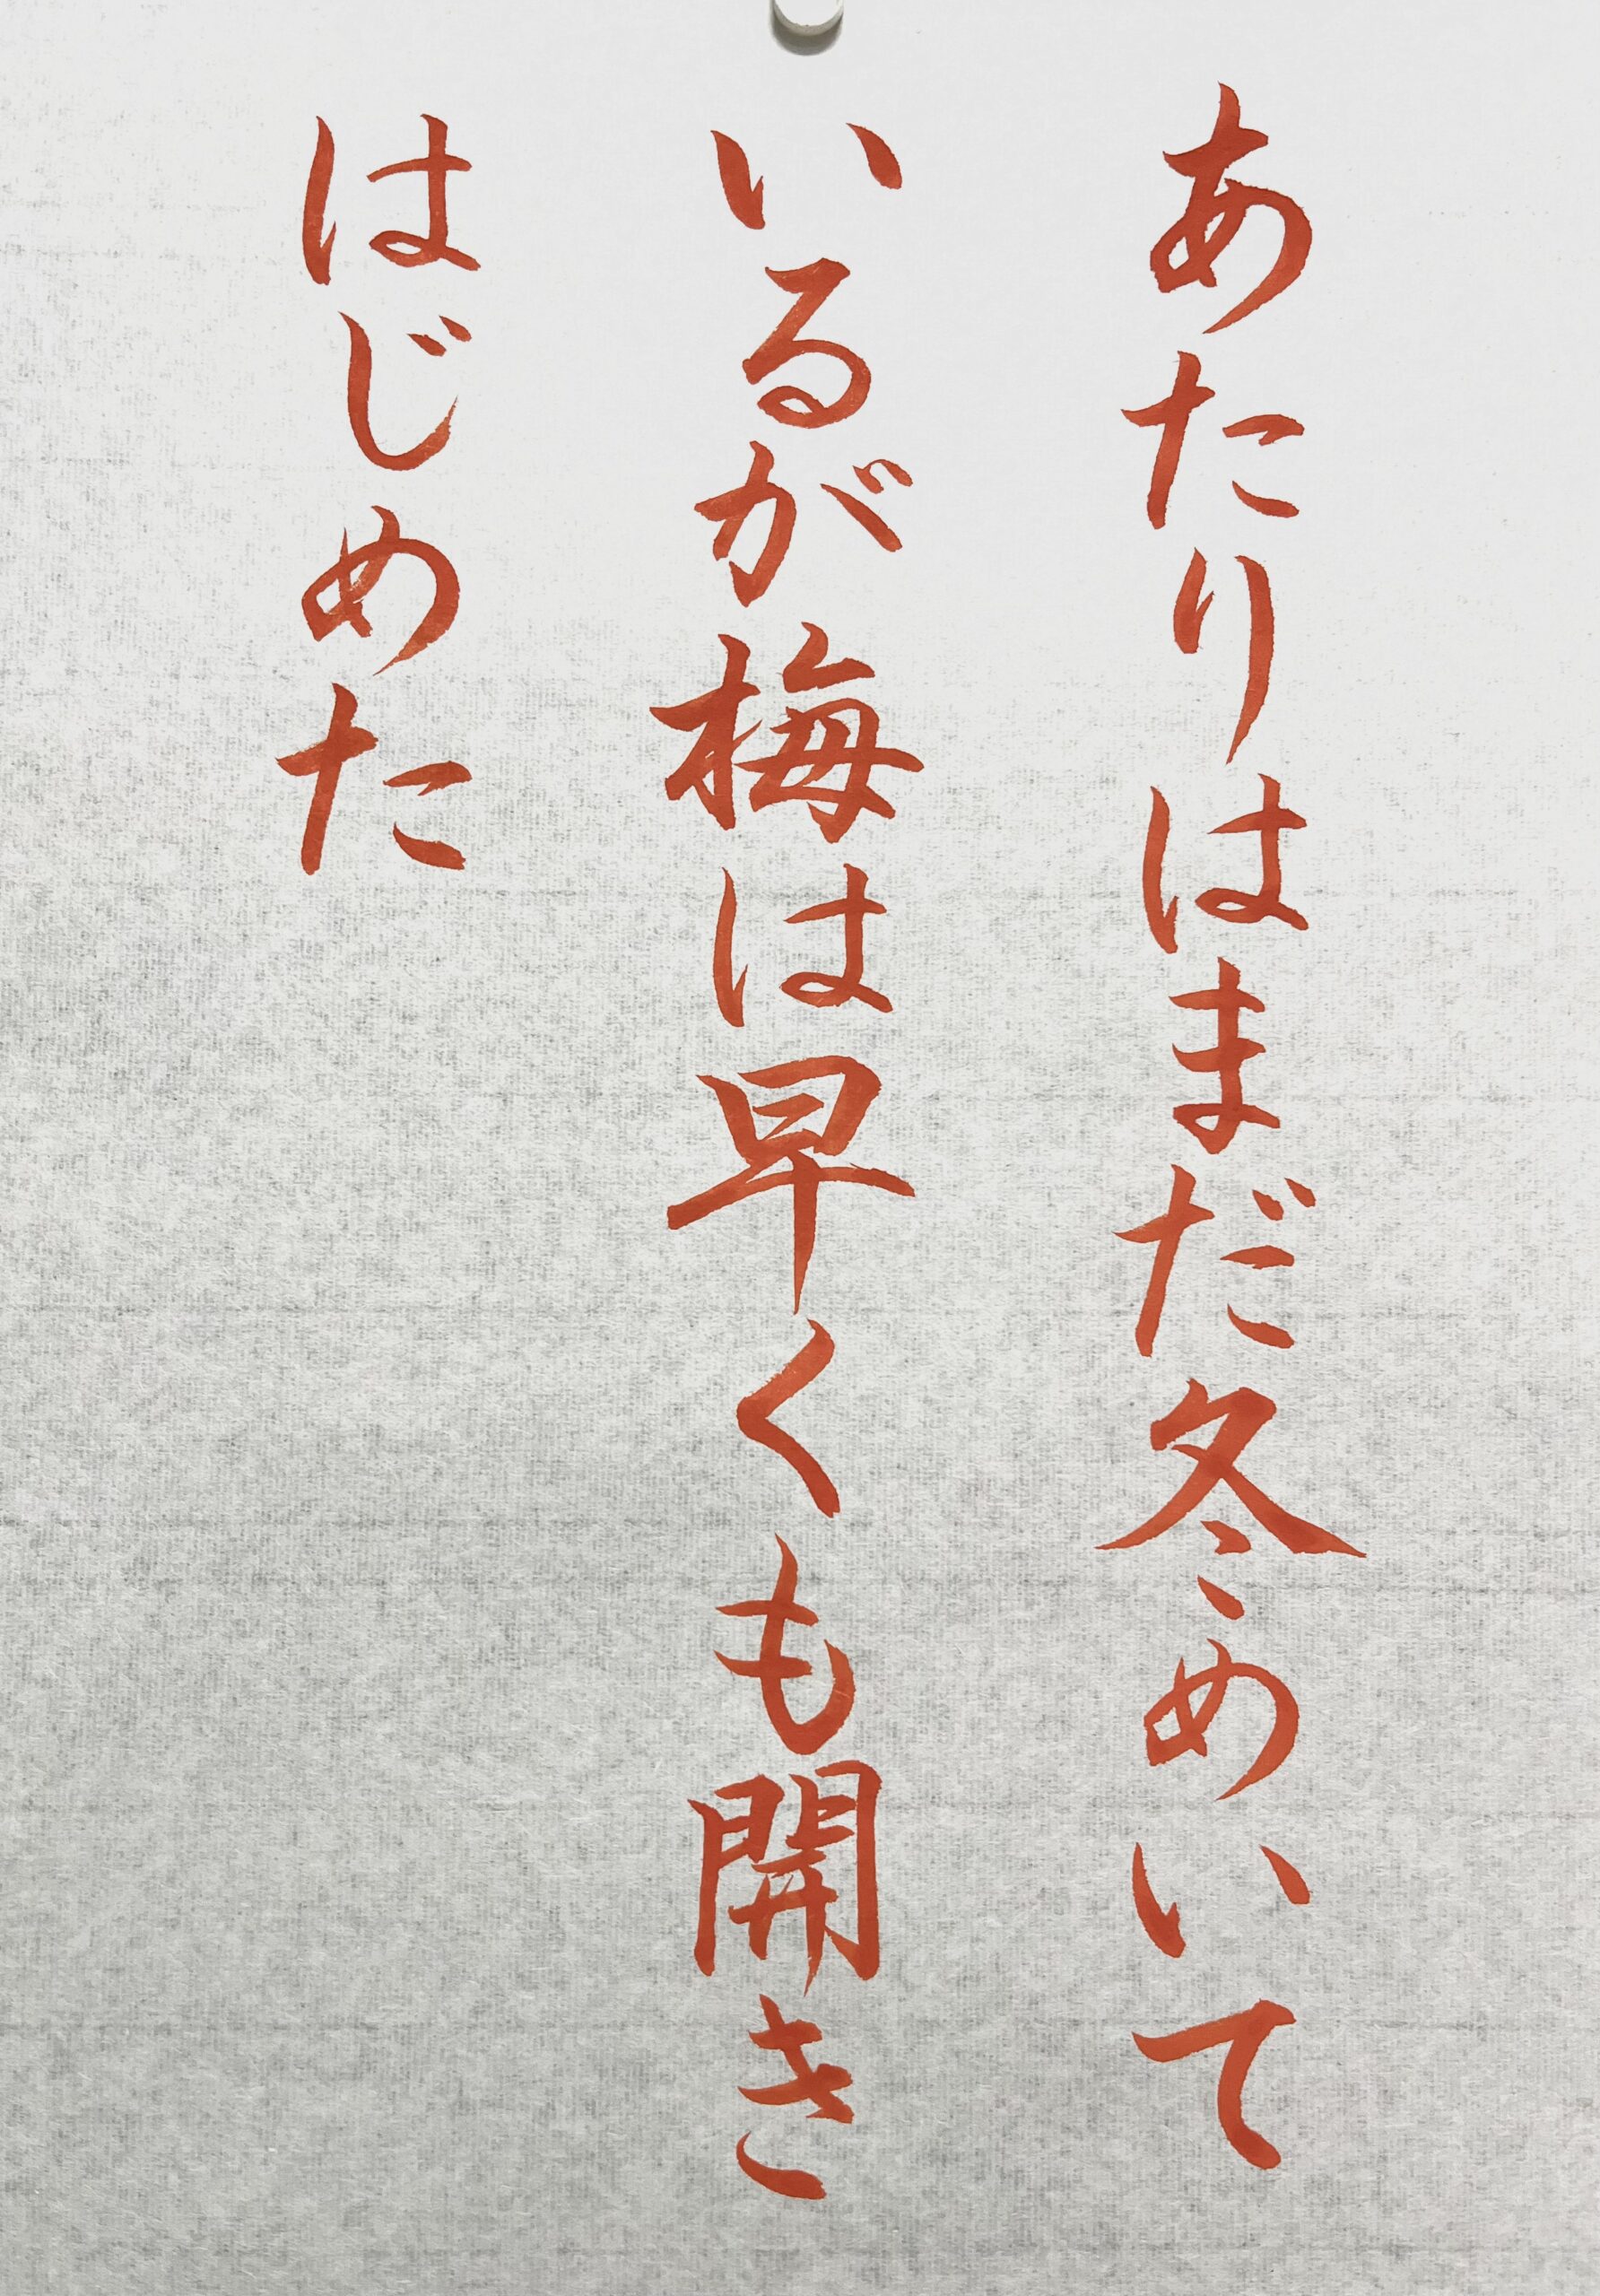 あたりはまだ冬めいて
いるが梅は早くも開き
はじめた